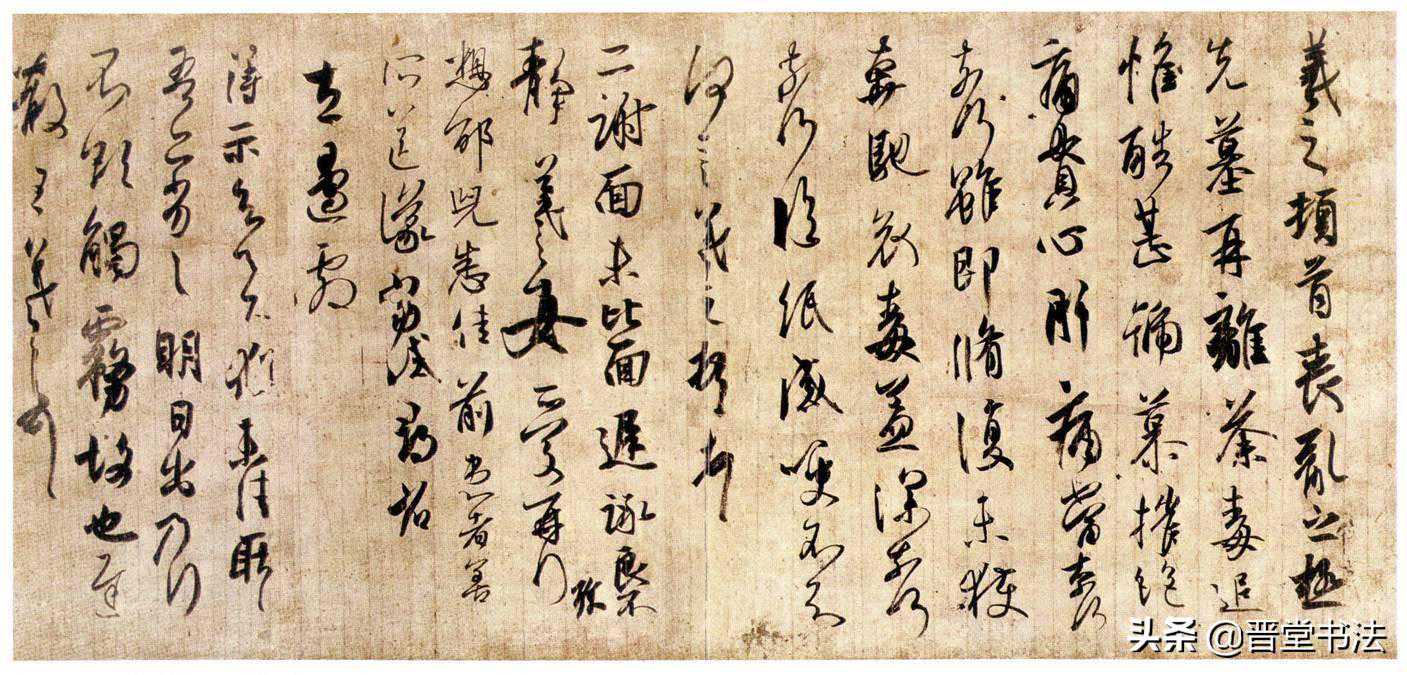 羲之頓首喪亂之極
先墓再離荼毒追
惟酷甚號慕摧絕
痛貫心肝痛當奈何
奈何雖即脩復未獲
奔馳哀毒益深奈何
奈何臨紙感哽不知
何言羲之頓首頓首
二謝面未比面遲詠良不
靜羲之女愛再拜
想邵兒悉佳前患者善
所送議當試尋省
左邊劇
得示知足下猶未佳耿耿
吾亦劣劣明日出乃行
不欲觸霧故也遲
散王羲之頓首
头条 @晋堂书法